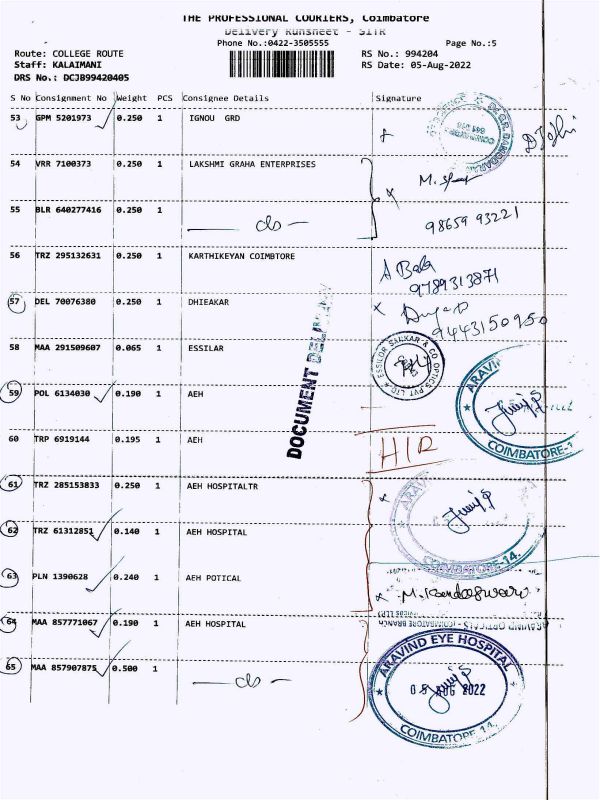 THE PROFESSIONAL COURIERS, Coimbatore
Delivery Runsheet - SITR
Phone No.:0422-3505555 Page No.:5
Route: COLLEGE ROUTE RS No.: 994204
Staff: KALAIMANI RS Date: 05-Aug-2022
DRS No.: DCJB99420405
S No Consignment No Weight PCS Consignee Details Signature
53 GPM 5201973 0.250 1 IGNOU GRD
54 VRR 7100373 0.250 1 LAKSHMI GRAHA ENTERPRISES
55 BLR 640277416 0.250 1 — do — 98659 93221
56 TRZ 295132631 0.250 1 KARTHIKEYAN COIMBTORE A Bala
9789313871
57 DEL 70076380 0.250 1 DHIEAKAR
9443150950
58 MAA 291509607 0.065 1 ESSILAR
DOCUMENT
59 POL 6134030 0.190 1 AEH
ARAVIND
COIMBATORE-1
60 TRP 6919144 0.195 1 AEH
61 TRZ 285153833 0.250 1 AEH HOSPITALTR
62 TRZ 61312851 0.140 1 AEH HOSPITAL
COIMBATORE-14.
63 PLN 1390628 0.240 1 AEH POTICAL
64 MAA 857771067 0.190 1 AEH HOSPITAL
65 MAA 857907875 0.500 1 — do —
ARAVIND EYE HOSPITAL
05 AUG 2022
COIMBATORE-14.